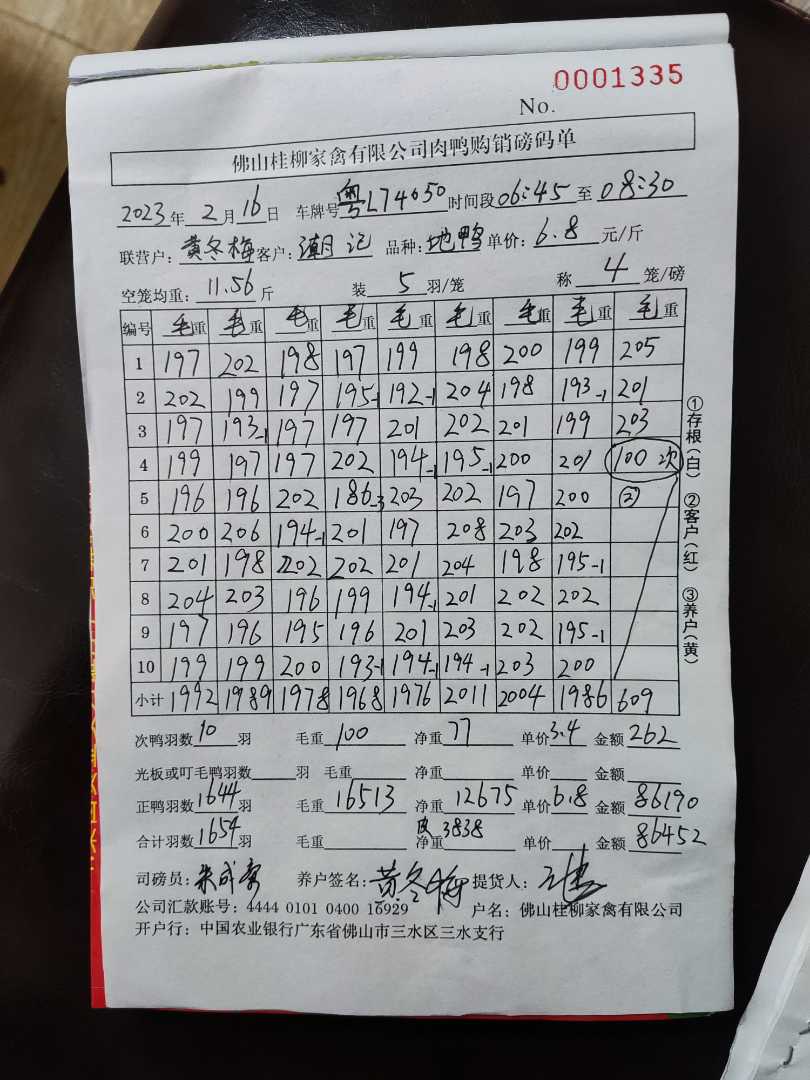 0001335
No.
佛山桂柳家禽有限公司肉鸭购销磅码单
2023年2月16日 车牌号粤L74050时间段06:45至08:30
联营户:黄冬梅客户: 记 品种:地鸭单价:6.8元/斤
空笼均重:11.56斤 装5羽/笼 称4笼/磅
编号 毛重 毛重 毛重 毛重 毛重 毛重 毛重 毛重 毛重
1 197 202 198 197 199 198 200 199 205
2 202 199 197 195-1 192-1 204 198 193-1 201
3 197 193-1 197 197 201 202 201 199 203
4 199 197 197 202 194-1 195-1 200 201 100次
5 196 196 202 186-3 203 202 197 200 ②
6 200 206 194-1 201 197 208 203 202
7 201 198 202 202 201 204 198 195-1
8 204 203 196 199 194-1 201 202 202
9 197 196 195 196 201 203 202 195-1
10 199 199 200 193-1 194-1 194-1 203 200
小计 1992 1989 1978 1968 1976 2011 2004 1986 609
①存根(白) ②客户(红) ③养户(黄)
次鸭羽数10羽 毛重100 净重77 单价3.4 金额262
光板或叮毛鸭羽数 羽 毛重 净重 单价 金额
正鸭羽数1644羽 毛重16513 净重12675 单价6.8 金额86190
合计羽数1654羽 毛重 净重皮3838 单价 金额86452
司磅员:朱成 养户签名:黄冬梅 提货人:
公司汇款账号:4444 0101 0400 16929 户名:佛山桂柳家禽有限公司
开户行:中国农业银行广东省佛山市三水区三水支行